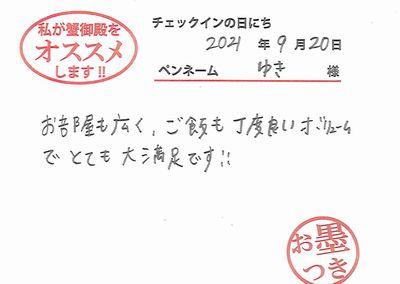 私が蟹御殿を
オススメ
します!!
チェックインの日にち
2021 年 9 月 20 日
ペンネーム ゆき 様
お部屋も広く、ご飯も丁度良いボリューム
でとても大満足です!!
お墨
つき